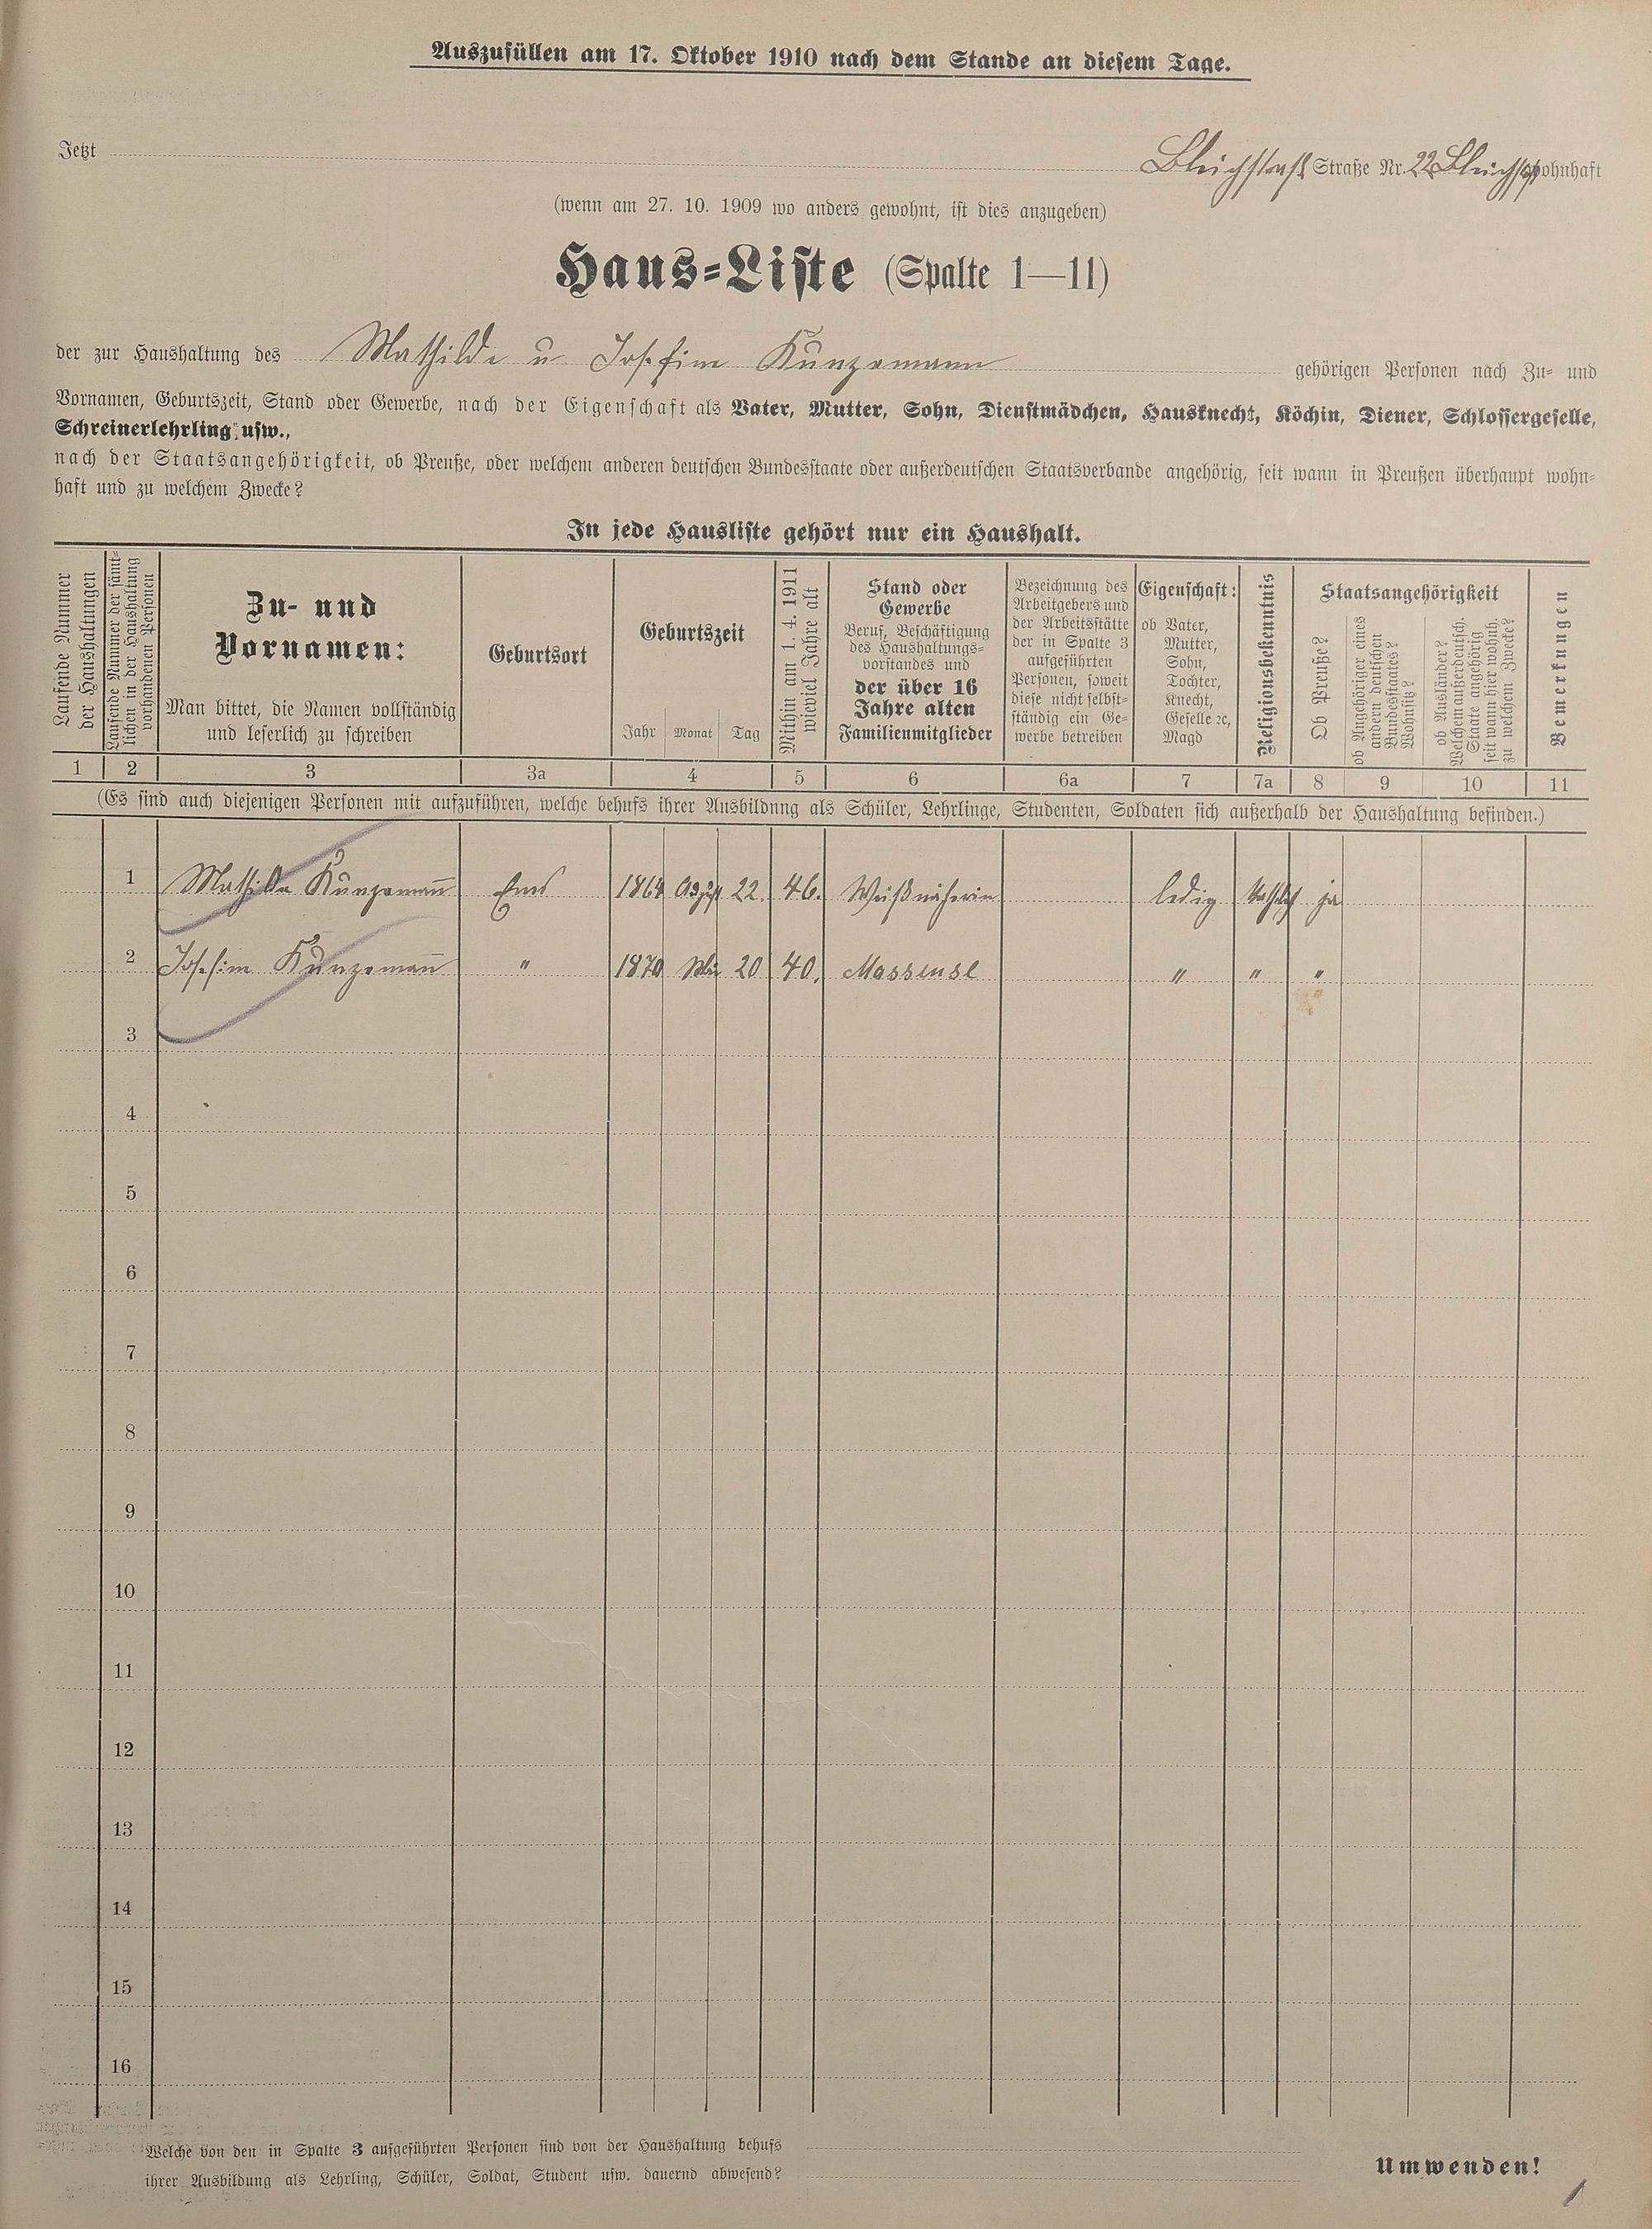 Auszufüllen am 17. Oktober 1910 nach dem Stande an diesem Tage.
Jetzt Bleichstraß Straße Nr. 22 wohnhaft
(wenn am 27. 10. 1909 wo anders gewohnt, ist dies anzugeben)
Haus-Liste (Spalte 1—11)
der zur Haushaltung des Mathilde u Josefine Kunzmann gehörigen Personen nach Zu- und
Vornamen, Geburtszeit, Stand oder Gewerbe, nach der Eigenschaft als Vater, Mutter, Sohn, Dienstmädchen, Hausknecht, Köchin, Diener, Schlossergeselle,
Schreinerlehrling usw.,
nach der Staatsangehörigkeit, ob Preuße, oder welchem anderen deutschen Bundesstaate oder außerdeutschen Staatsverbande angehörig, seit wann in Preußen überhaupt wohn-
haft und zu welchem Zwecke?
In jede Hausliste gehört nur ein Haushalt.
Laufende Nummer
der Haushaltungen
Laufende Nummer der sämt-
lichen in der Haushaltung
vorhandenen Personen
Zu- und
Vornamen:
Man bittet, die Namen vollständig
und leserlich zu schreiben
Geburtsort
Geburtszeit
Jahr Monat Tag
Mithin am 1. 4. 1911
wieviel Jahre alt
Stand oder
Gewerbe
Beruf, Beschäftigung
des Haushaltungs-
vorstandes und
der über 16
Jahre alten
Familienmitglieder
Bezeichnung des
Arbeitgebers und
der Arbeitsstätte
der in Spalte 3
aufgeführten
Personen, soweit
diese nicht selbst-
ständig ein Ge-
werbe betreiben
Eigenschaft:
ob Vater,
Mutter,
Sohn,
Tochter,
Knecht,
Geselle ꝛc,
Magd
Religionsbekenntnis
Staatsangehörigkeit
Ob Preuße?
ob Angehöriger eines
andern deutschen
Bundesstaates?
Wohnsitz?
ob Ausländer?
Welchem außerdeutsch.
Staate angehörig
seit wann hier wohnh.
zu welchem Zwecke?
Bemerkungen
1 2 3 3a 4 5 6 6a 7 7a 8 9 10 11
(Es sind auch diejenigen Personen mit aufzuführen, welche behufs ihrer Ausbildung als Schüler, Lehrlinge, Studenten, Soldaten sich außerhalb der Haushaltung befinden.)
1 Mathilde Kunzmann Ems 1864 22. 46. Weißnäherin ledig ja
2 Josefine Kunzmann " 1870 20 40. Masseuse " " "
3
4
5
6
7
8
9
10
11
12
13
14
15
16
Welche von den in Spalte 3 aufgeführten Personen sind von der Haushaltung behufs
ihrer Ausbildung als Lehrling, Schüler, Soldat, Student usw. dauernd abwesend?
Umwenden!